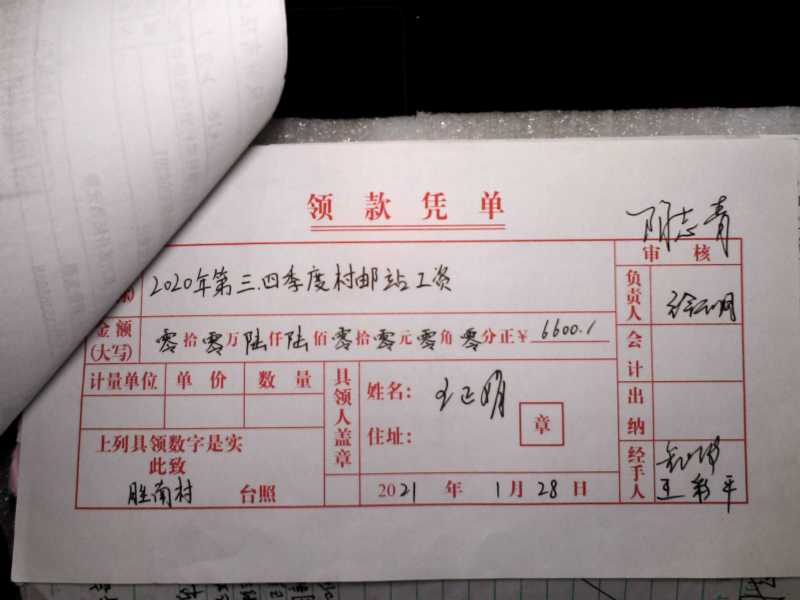 领款凭单
阴志青
审核
2020年第三.四季度村邮站工资
负责人
金额(大写) 零拾零万陆仟陆佰零拾零元零角零分正￥6600.1
会计
计量单位 单价 数量
具领人盖章
姓名:
章
住址:
出纳
上列具领数字是实
此致
胜南村 台照
经手人
2021年1月28日